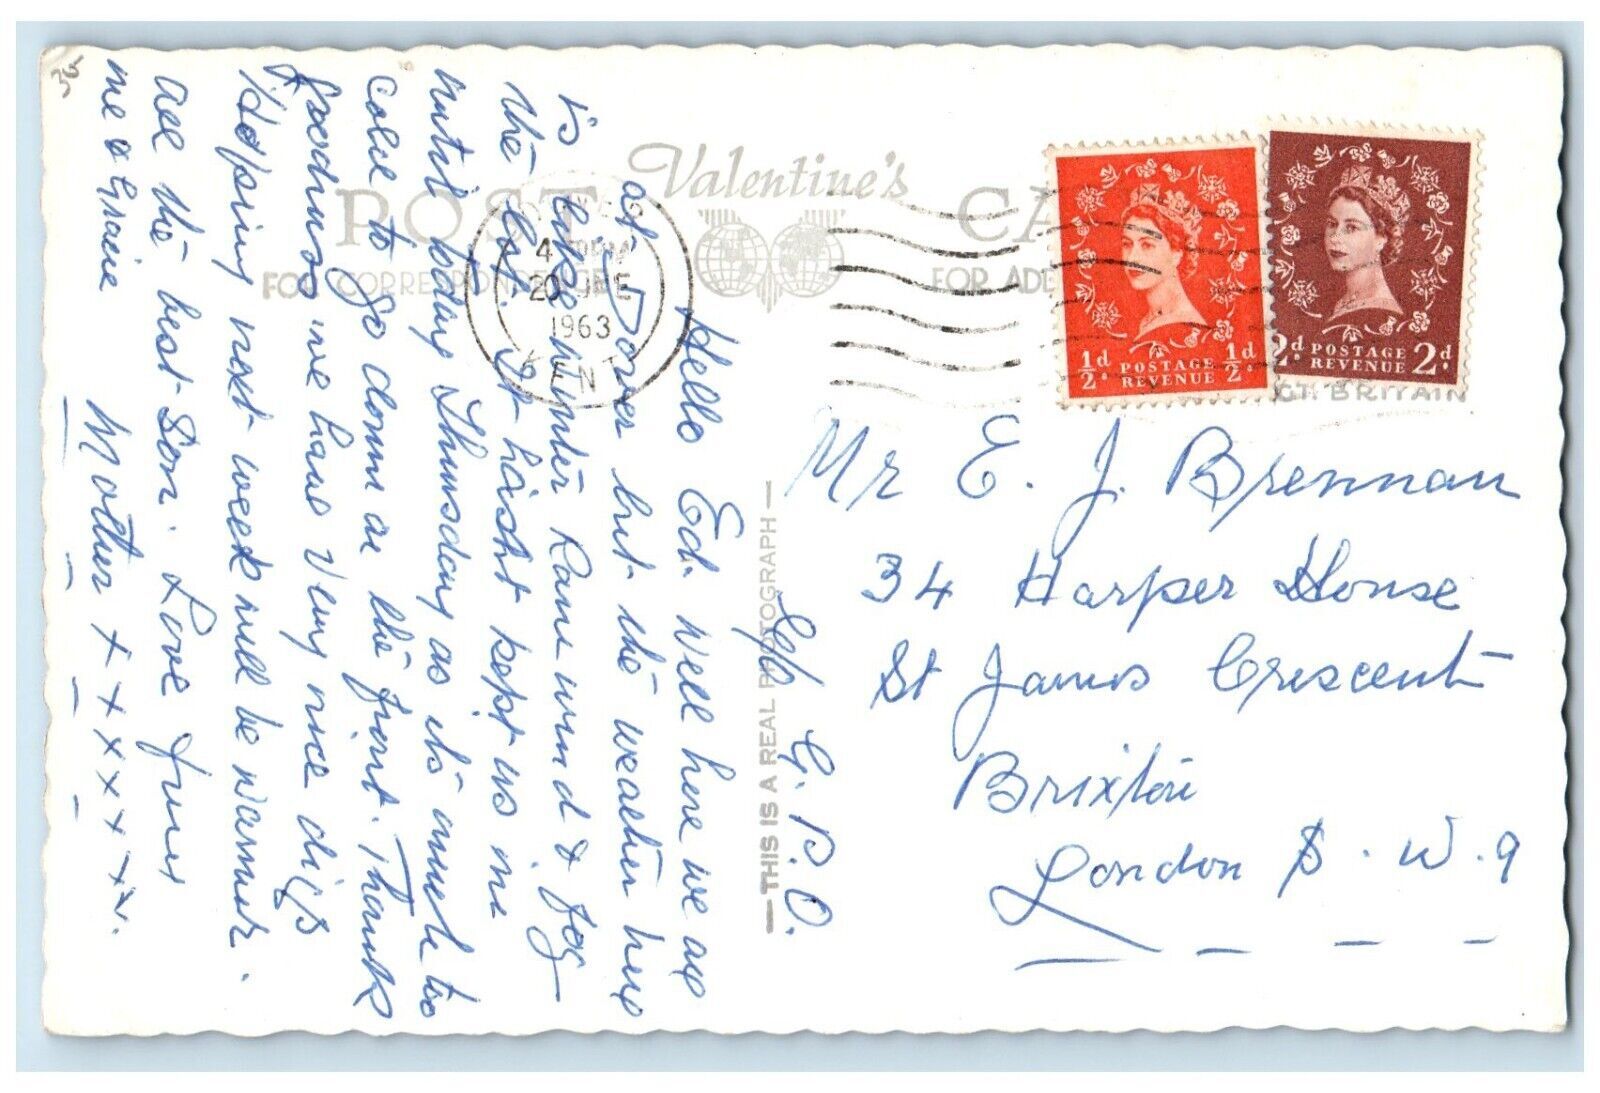 35
Valentine's
POST CA
FOR CORRESPONDENCE FOR ADD
4 PM
20 JNE
1963
KENT
½d ½d
POSTAGE
REVENUE
2d 2d
POSTAGE
REVENUE
GT. BRITAIN
THIS IS A REAL PHOTOGRAPH
G.P.O.
Hello Ed. Well here we are
at Dover but the weather here
is like winter Rain wind & fog
the lot. It hasnt kept us in
until today Thursday as its much too
cold to go down on the front. Thank
goodness we have very nice digs
Hopping next week will be warmer.
All the best Son. Love from
me & Gracie Mother x x x x x x x
Mr E. J. Brennan
34 Harper House
St James Crescent
Brixton
London S. W. 9